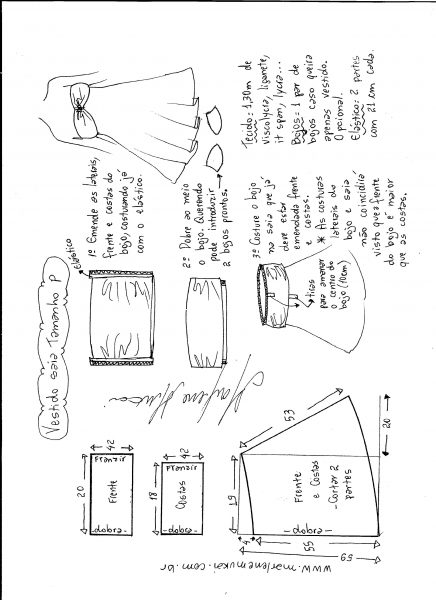 Vestido saia Tamanho P
elástico
1º Emende as laterais,
frente e costas do
bojo, costurando já
com o elástico.
2º Dobre ao meio
o bojo. Querendo
pode introduzir
2 bojos prontos.
3º Costure o bojo
na saia que já
deve estar
emendada frente
e costas.
* As costuras
laterais do
bojo e saia
não coincidirá
visto que a frente
do bojo é maior
que as costas.
tiras
para amarrar
o centro do
bojo (10cm)
Tecido: 1,30m de
viscolycra, liganete,
it span, lycra...
Bojos: 1 par de
bojos caso queira
apenas vestido.
Opcional.
Elástico: 2 partes
com 21 cm cada.
42
Franzir
20
Frente
-dobra-
42
Franzir
18
Costas
-dobra-
53
20
19
Frente
e Costas
-Cortar 2
partes
-dobra-
4
55
59
www.marlenemukai.com.br
Marlene Mukai